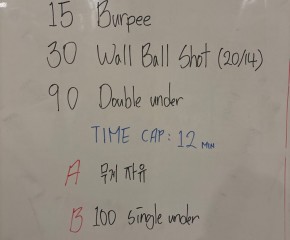 15 Burpee
30 Wall Ball Shot (20/14)
90 Double under
TIME CAP: 12 MIN
A 무게 자유
B 100 Single under